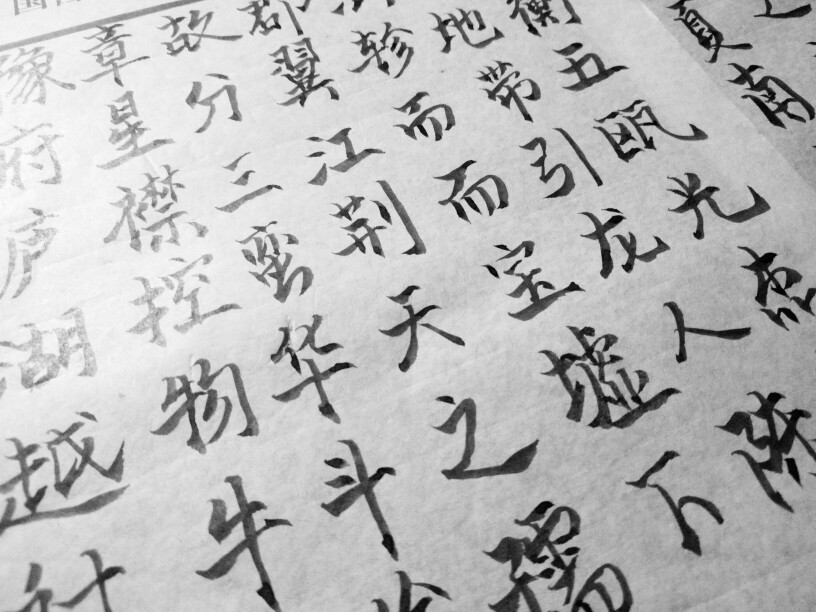 豫章故郡
府星分翼轸地衡
庐襟三江而带五
湖控蛮荆而引瓯
越物华天宝龙光
牛斗之墟人
孺下陈
夏
南